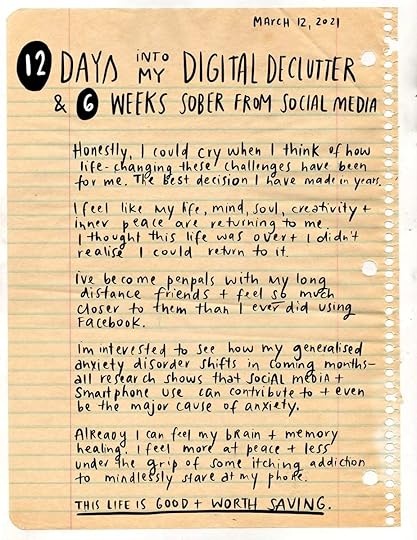 MARCH 12, 2021
12 DAYS INTO MY DIGITAL DECLUTTER
& 6 WEEKS SOBER FROM SOCIAL MEDIA
Honestly, I could cry when I think of how
life-changing these challenges have been
for me. The best decision I have made in years.
I feel like my life, mind, soul, creativity +
inner peace are returning to me.
I thought this life was over + I didn't
realise I could return to it.
Ive become penpals with my long
distance friends + feel so much
closer to them than I ever did using
Facebook.
Im interested to see how my generalised
anxiety disorder shifts in coming months-
all research shows that social media +
smartphone use can contribute to + even
be the major cause of anxiety.
Already I can feel my brain + memory
healing. I feel more at peace + less
under the grip of some itching addiction
to mindlessly stare at my phone.
THIS LIFE IS GOOD + WORTH SAVING.